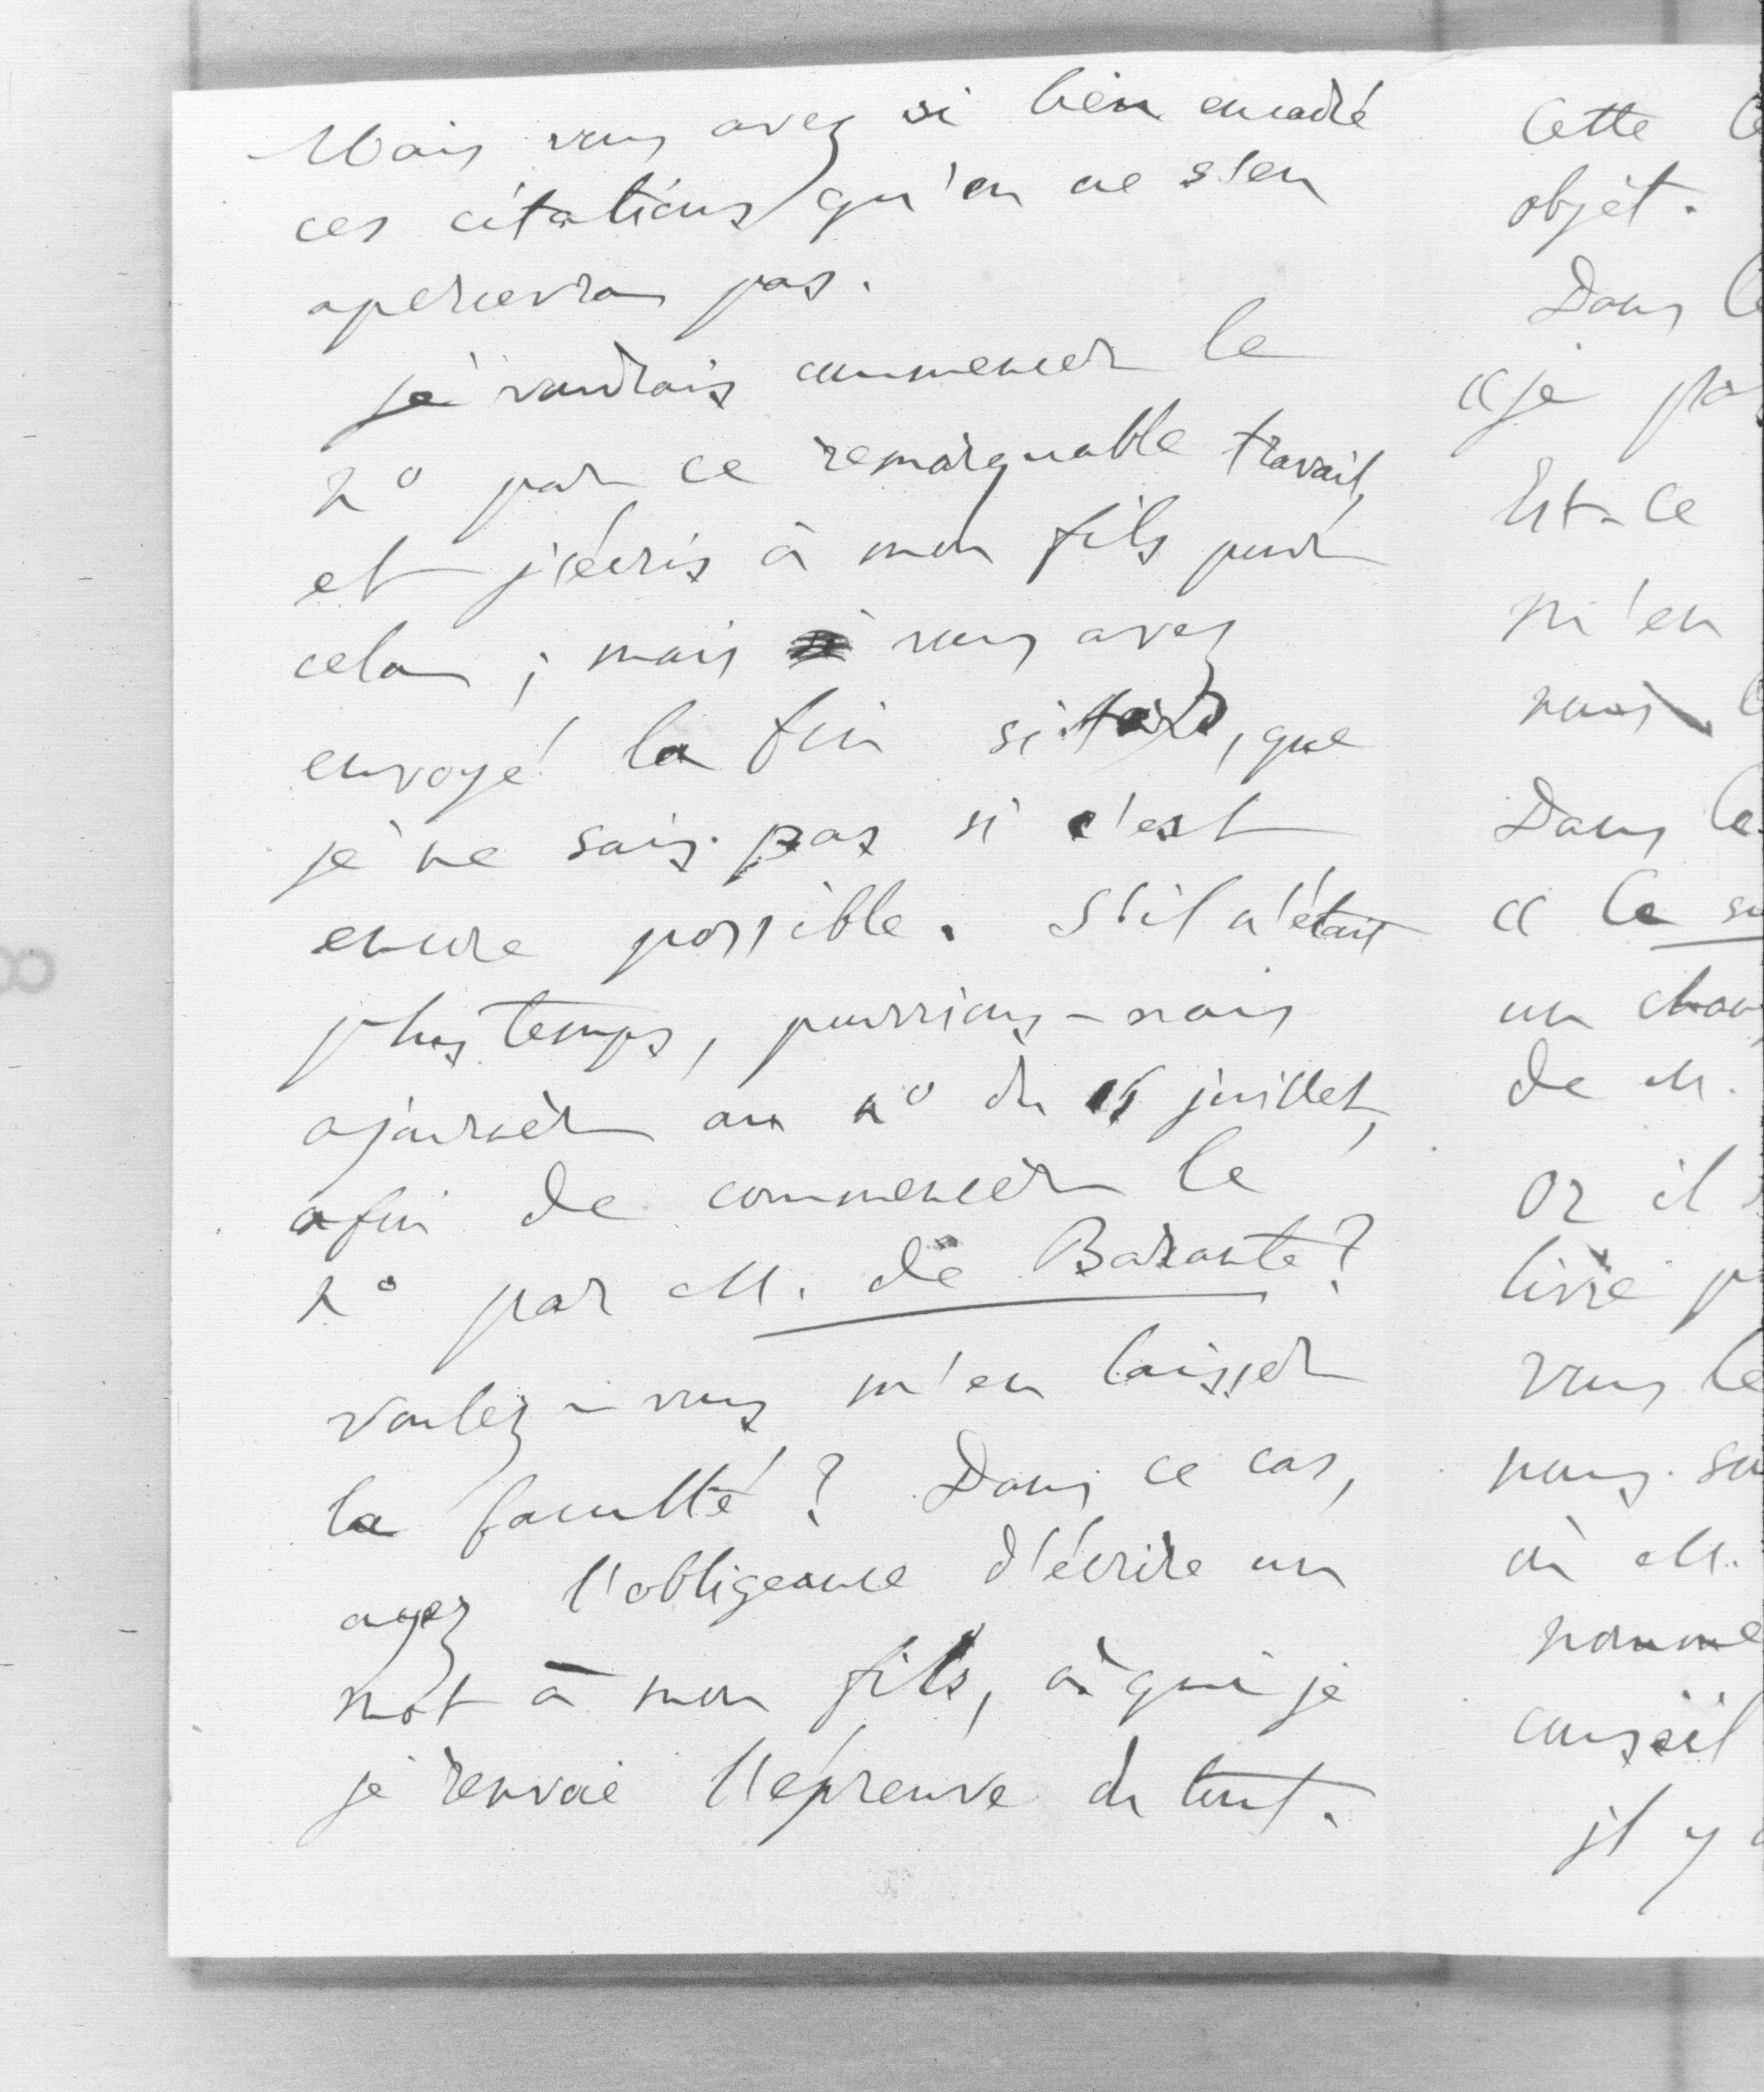 Mais vous avez si bien encadré
ces citations qu'on ne s'en
apercevra pas.
je voudrais commencer le
no par ce remarquable travail,
et j'écris à mon fils pour
cela ; mais vous avez
envoyé la fin si tard, que
je ne sais pas si c'est
encore possible. S'il n'était
plus temps, pourrions-nous
ajourner au no du 15 juillet,
afin de commencer le
no par M. de Barante ?
voulez-vous m'en laisser
la faculté ? Dans ce cas,
ayez l'obligeance d'écrire un
mot à mon fils, à qui je
je renvoie l'épreuve du tout.
Cette
objet.
Dans
"je
Est-ce
m'en
nous
Dans le
" Le
un
de M.
Or il
livre
vous le
nous
où M.
nomme
conseil
il y